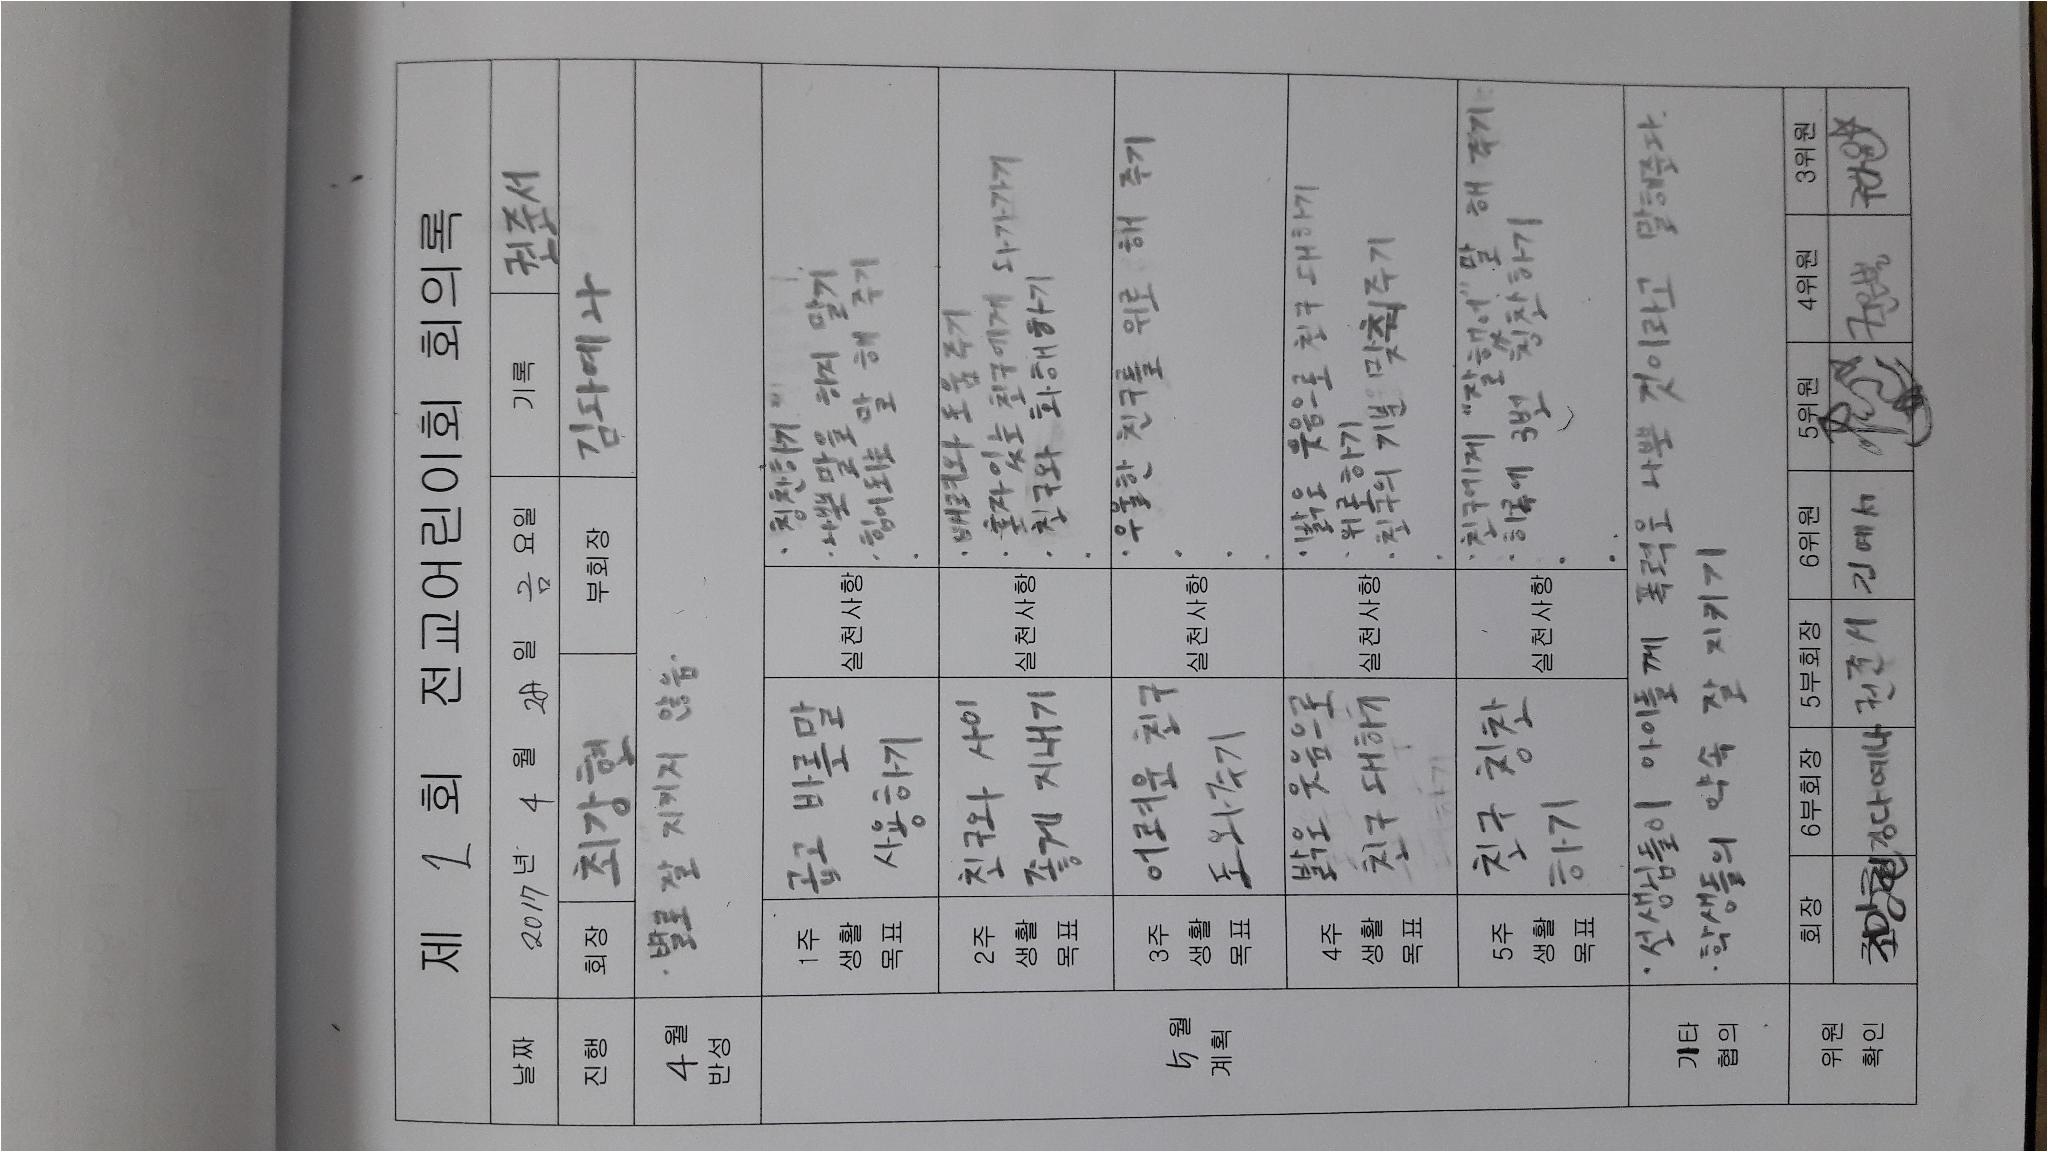 제 1 회 전교어린이회 회의록
날짜 2017 년 4 월 28 일 금 요일 기록 권준서
진행 회장 최강현 부회장 김다예나
4 월
반성
· 별로 잘 지키지 않음.
5 월
계획
1주
생활
목표
곱고 바른말
사용하기
실천사항
· 칭찬하기
· 나쁜말을 하지 말기
· 힘이되는 말 해 주기
·
2주
생활
목표
친구와 사이
좋게 지내기
실천사항
· 배려와 도움 주기
· 혼자있는 친구에게 다가가기
· 친구와 화해하기
·
3주
생활
목표
어려운 친구
도와주기
실천사항
· 우울한 친구를 위로 해 주기
·
·
4주
생활
목표
밝은 웃음으로
친구 대하기
실천사항
· 밝은 웃음으로 친구 대하기
· 위로하기
· 친구의 기분 맞춰주기
·
5주
생활
목표
친구 칭찬
하기
실천사항
· 친구에게 "잘했어" 말 해 주기
· 하루에 3번 칭찬하기
·
·
기타
협의
· 선생님들이 아이들께 폭력은 나쁜 것이라고 말해준다.
· 학생들의 약속 잘 지키기
위원
확인
회장 6부회장 5부회장 6위원 5위원 4위원 3위원
최강현 김다예나 권준서 김예서